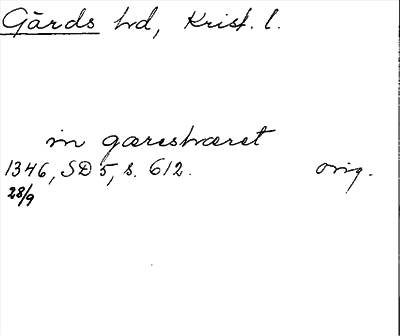 Gärds hd, Krist. l.
in gæreshæret
1346, SD 5, s. 612. orig.
28/9